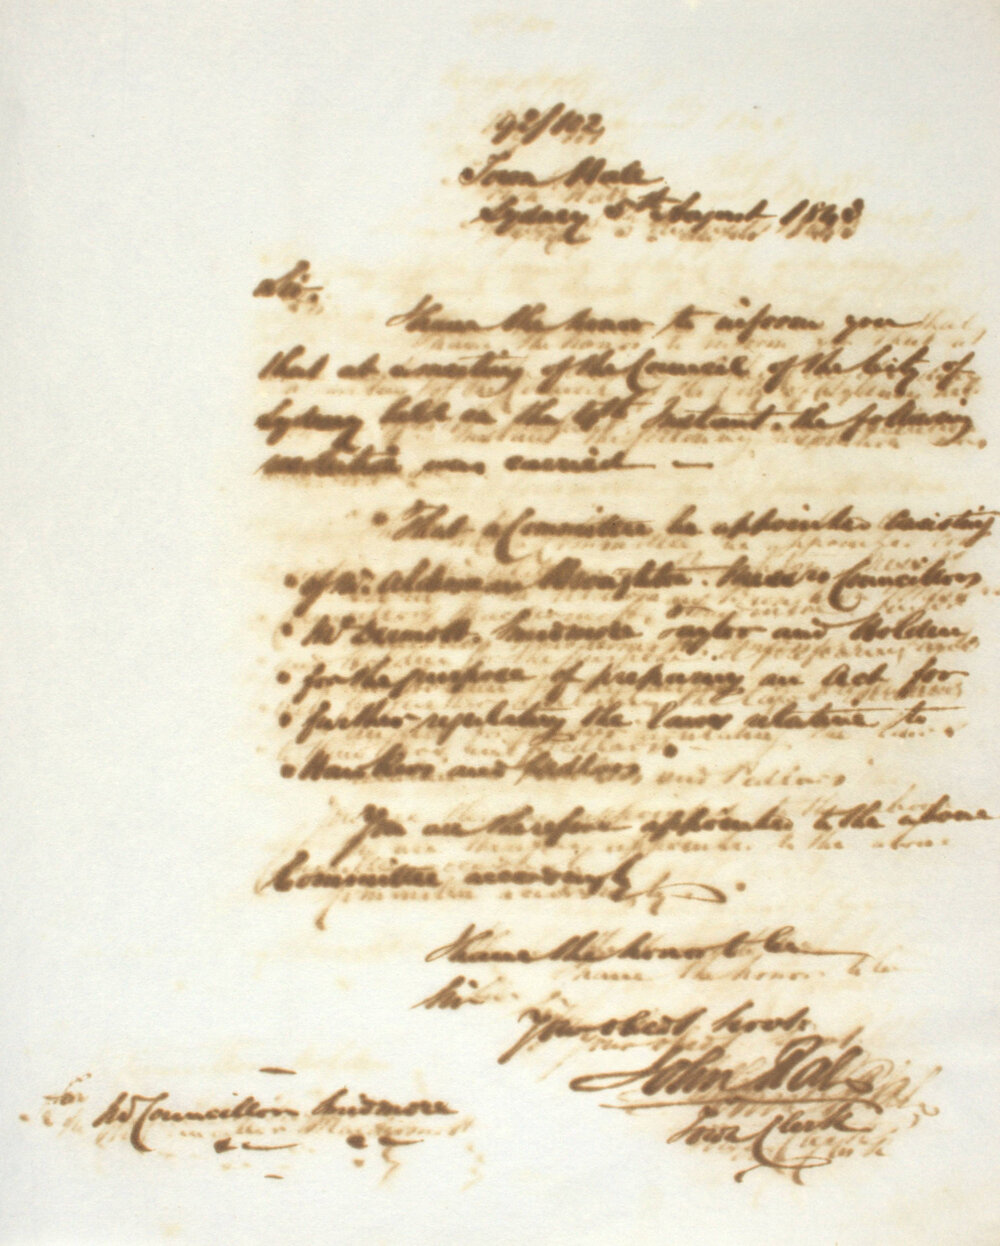 92/102
Town Hall
Sydney 5th August 1843
Sir,
I have the honor to inform you
that at a meeting of the Council of the City of
Sydney held on the 4th Instant. the following
resolution was carried —
"That a Committee be appointed consisting
" of Mr. Alderman Broughton. Messrs Councillors
" McDermott, Skidmore Taylor and Holden,
" for the purpose of preparing an Act for
" further regulating the laws relative to
" Hawkers and Pedlars,"
You are therefore appointed to the above
Committee accordingly.
I have the honor to be
Sir
Your obedt Servt
John
Town Clerk
Mr Councillor Skidmore
&c &c